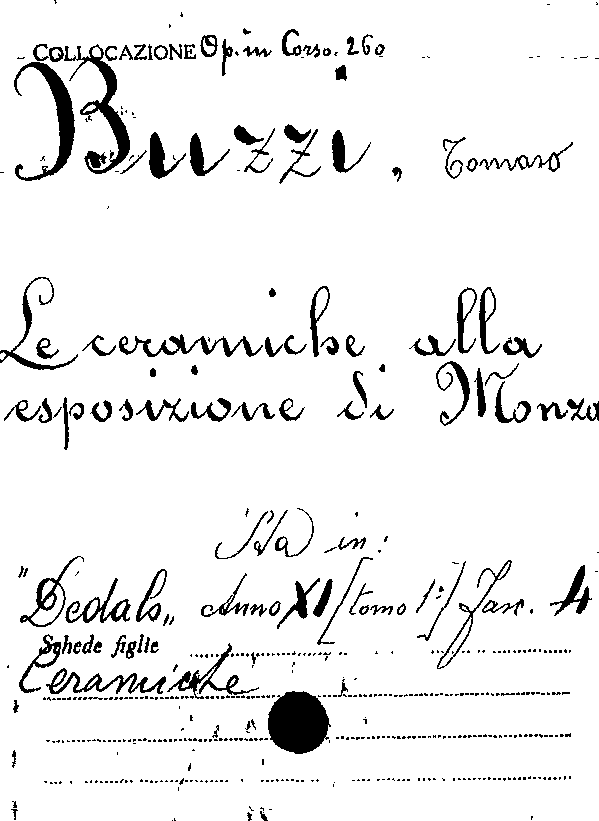 COLLOCAZIONE Op. in Corso. 260
Buzzi, Tomaso
Le ceramiche alla
esposizione di Monza
Sta in:
"Dedalo" Anno XI [tomo 1º] Fasc. 4
Schede figlie
Ceramiche